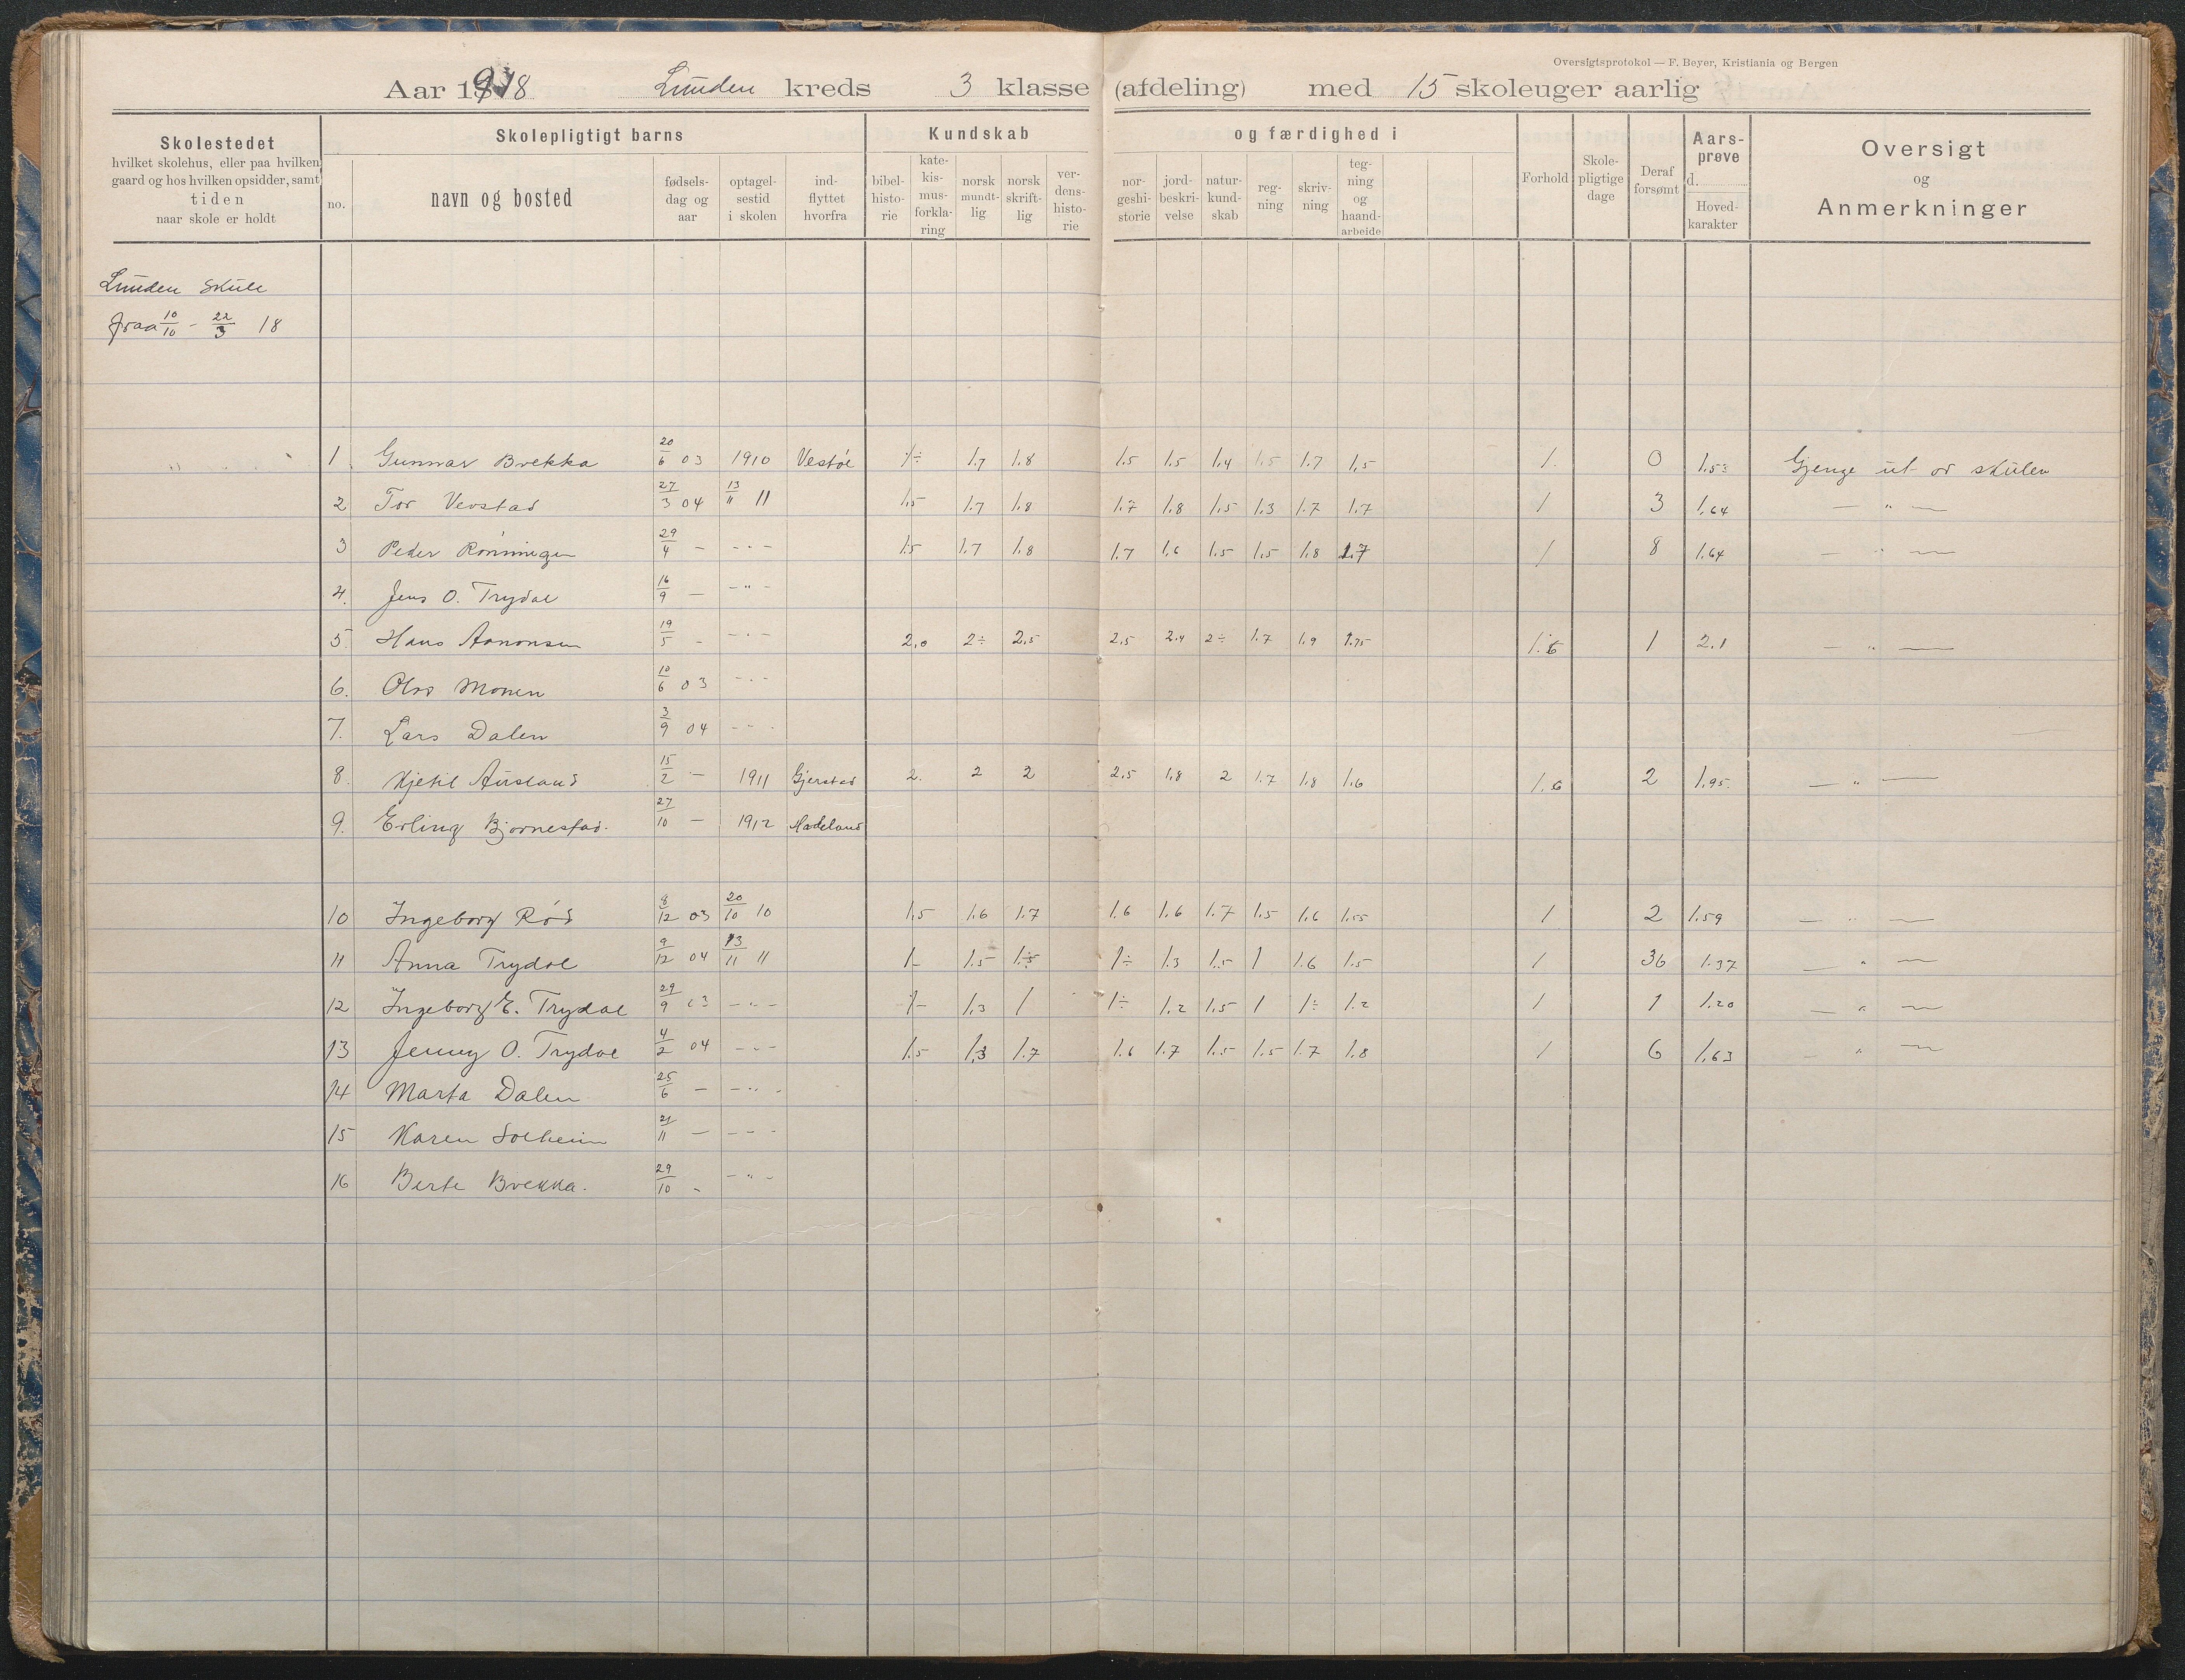 Oversigtsprotokol — F. Beyer, Kristiania og Bergen
Aar 1918 Lunden kreds 3 klasse (afdeling) med 15 skoleuger aarlig
Skolestedet
hvilket skolehus, eller paa hvilken
gaard og hos hvilken opsidder, samt
tiden
naar skole er holdt
Skolepligtigt barns
no.
navn og bosted
fødsels-
dag og
aar
optagel-
sestid
i skolen
ind-
flyttet
hvorfra
Kundskab
bibel-
histo-
rie
kate-
kis-
mus-
forkla-
ring
norsk
mundt-
lig
norsk
skrift-
lig
ver-
dens-
histo-
rie
og færdighed i
nor-
geshi-
storie
jord-
beskri-
velse
natur-
kund-
skab
reg-
ning
skriv-
ning
teg-
ning
og
haand-
arbeide
Forhold
Skole-
pligtige
dage
Deraf
forsømt
Aars-
prøve
d.
Hoved-
karakter
Oversigt
og
Anmerkninger
Lunden Skule
fraa 10/10 - 22/3 18
" " 1 Gunnar Brekka 20/6 03 1910 Vestøl 1÷ 1.7 1.8 1.5 1.5 1.4 1.5 1.7 1.5 1. 0 1.53 Gjenge ut or skulen
2 Tor Vevstad 27/3 04 13/11 11 1.5 1.7 1.8 1.7 1.8 1.5 1.3 1.7 1.7 1 3 1.64 — " —
3 Peder Rønningen 29/4 — - " - 1.5 1.7 1.8 1.7 1.6 1.5 1.5 1.8 1.7 1 8 1.64 — " —
4. Jens O. Trydal 16/9 — - " -
5. Hans Aanonsen 19/5 - - " - 2,0 2÷ 2,5 2,5 2,4 2÷ 1.7 1.9 1.75 1.5 1 2.1 — " —
6. Olav Monen 10/6 03 - " -
7. Lars Dalen 3/9 04 - " -
8. Kjetil Ausland 15/2 — 1911 Gjerstad 2. 2 2 2,5 1.8 2 1.7 1.8 1.6 1.6 2 1.95. — " —
9. Erling Bjørnestad. 27/10 — 1912 Hadeland
10 Ingeborg Rød 8/12 03 20/10 10 1.5 1.6 1.7 1.6 1.6 1.7 1.5 1.6 1.55 1 2 1.59 — " —
11 Anna Trydal 9/12 04 13/11 11 1- 1.5 1.5 1÷ 1.3 1.5 1 1.6 1.5 1 36 1.37 — " —
12 Ingeborg E. Trydal 29/9 03 - " - 1- 1.3 1 1÷ 1.2 1.5 1 1÷ 1.2 1 1 1.20 — " —
13 Jenny O. Trydal 4/2 04 - " - 1.5 1.3 1.7 1.6 1.7 1.5 1.5 1.7 1.8 1 6 1.63 — " —
14 Marta Dalen 25/6 — - " -
15 Karen Solheim 21/11 — - - -
16 Berte Brekka. 29/10 - - " -